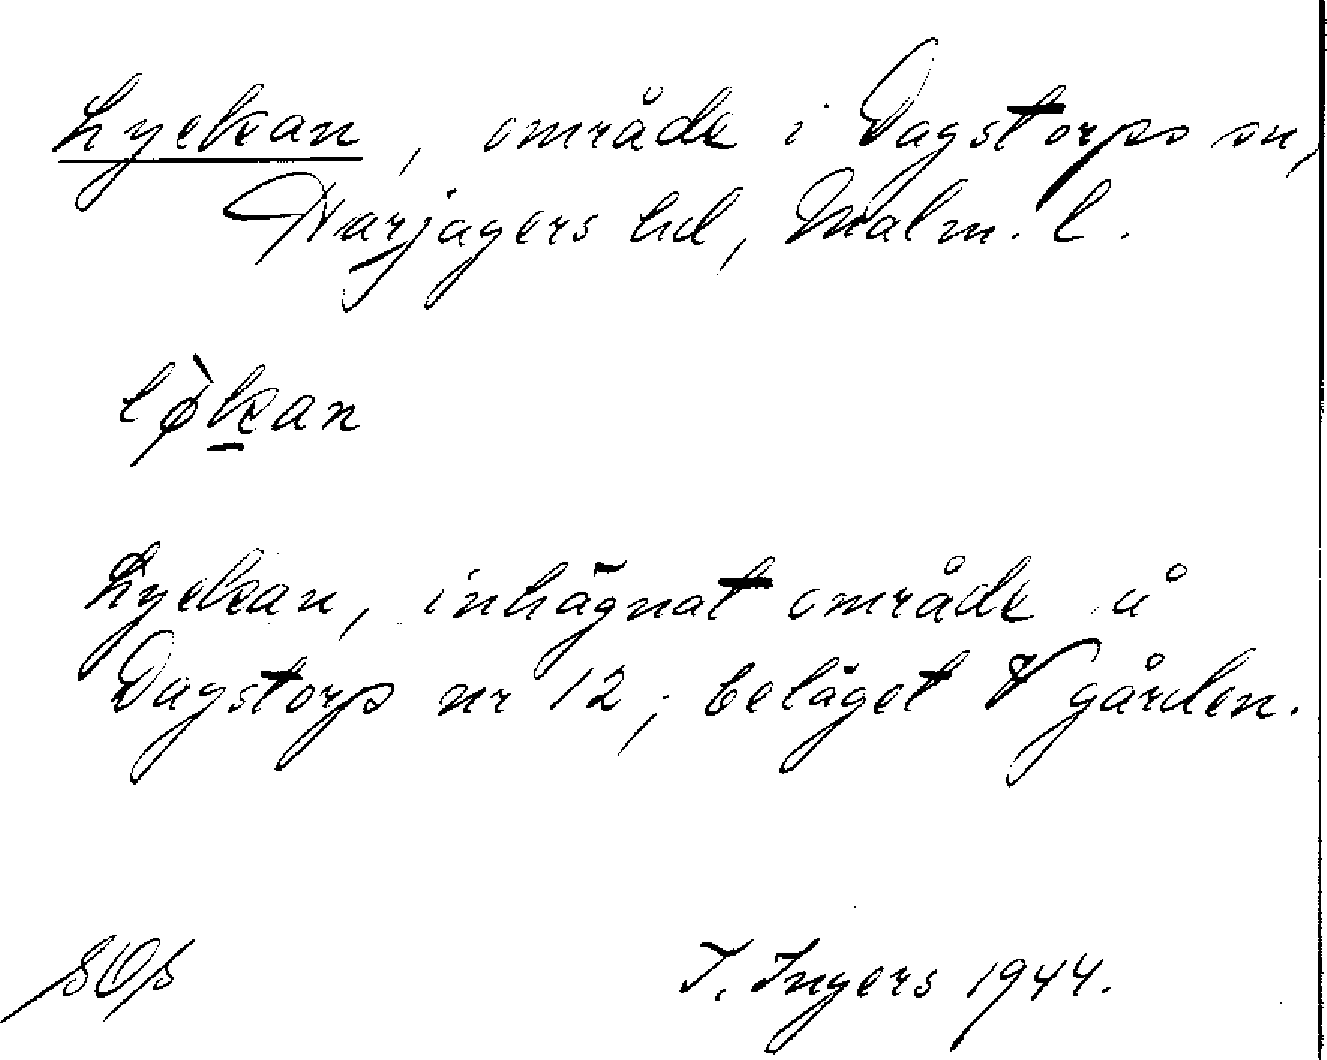 Lyckan, område i Dagstorps sn,
Harjagers hd, Malm. l.
lø̀kan
Lyckan, inhägnat område å
Dagstorp nr 12, beläget V gården.
I. Ingers 1944.